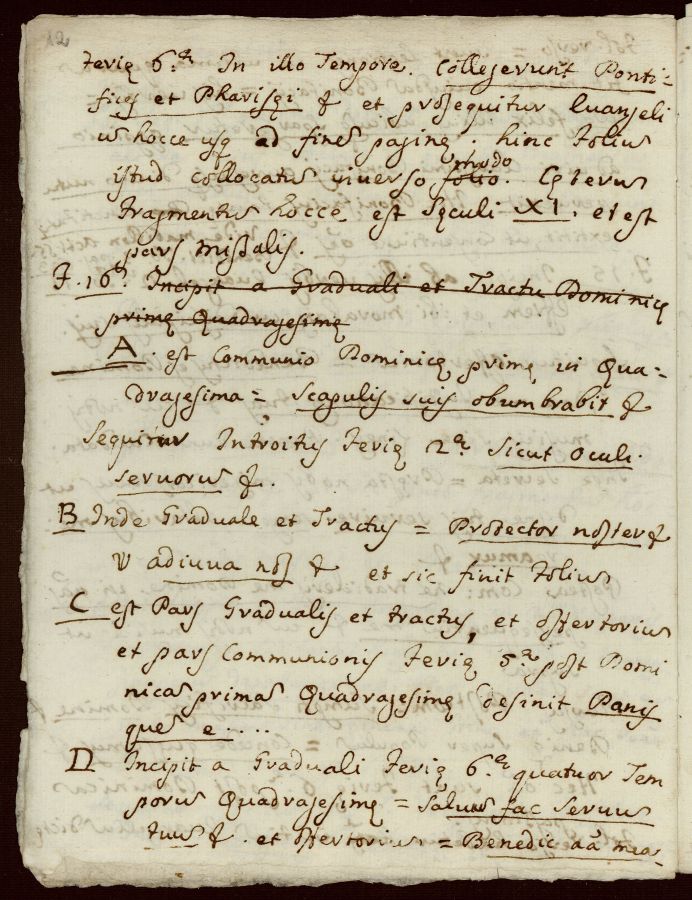 12
ferię 6.ª In illo Tempore. Collegerunt Ponti=
fices et Pharisęi & et prosequitur Euangeli
ū hocce usq ad finē paginę. hinc foliū
istud collocatū inverso modo folio. Cęterū
fragmentū hocce est Sęculi XI. et est
pars missalis.
F. 16.ª Incipit a Graduali et Tractu Dominicę
primę Quadragesimę
A. est Communio Dominicę primę in Qua=
dragesima = Scapulis suis obumbrabit &
Sequitur Introitus ferię 2.ª Sicut oculi
seruorū &.
B Inde Graduale et Tractus = Protector noster &
V adiuua nos & et sic finit foliū
C est Pars Gradualis et tractus, et offertoriū
et pars Communionis ferię 5.ª post Domi
nicā primā Quadragesimę desinit Panis
quē e....
D Incipit a Graduali ferię 6.ª quatuor Tem
porū Quadragesimę = Saluū fac seruū
tuū & . et offertoriū = Benedic aā meā